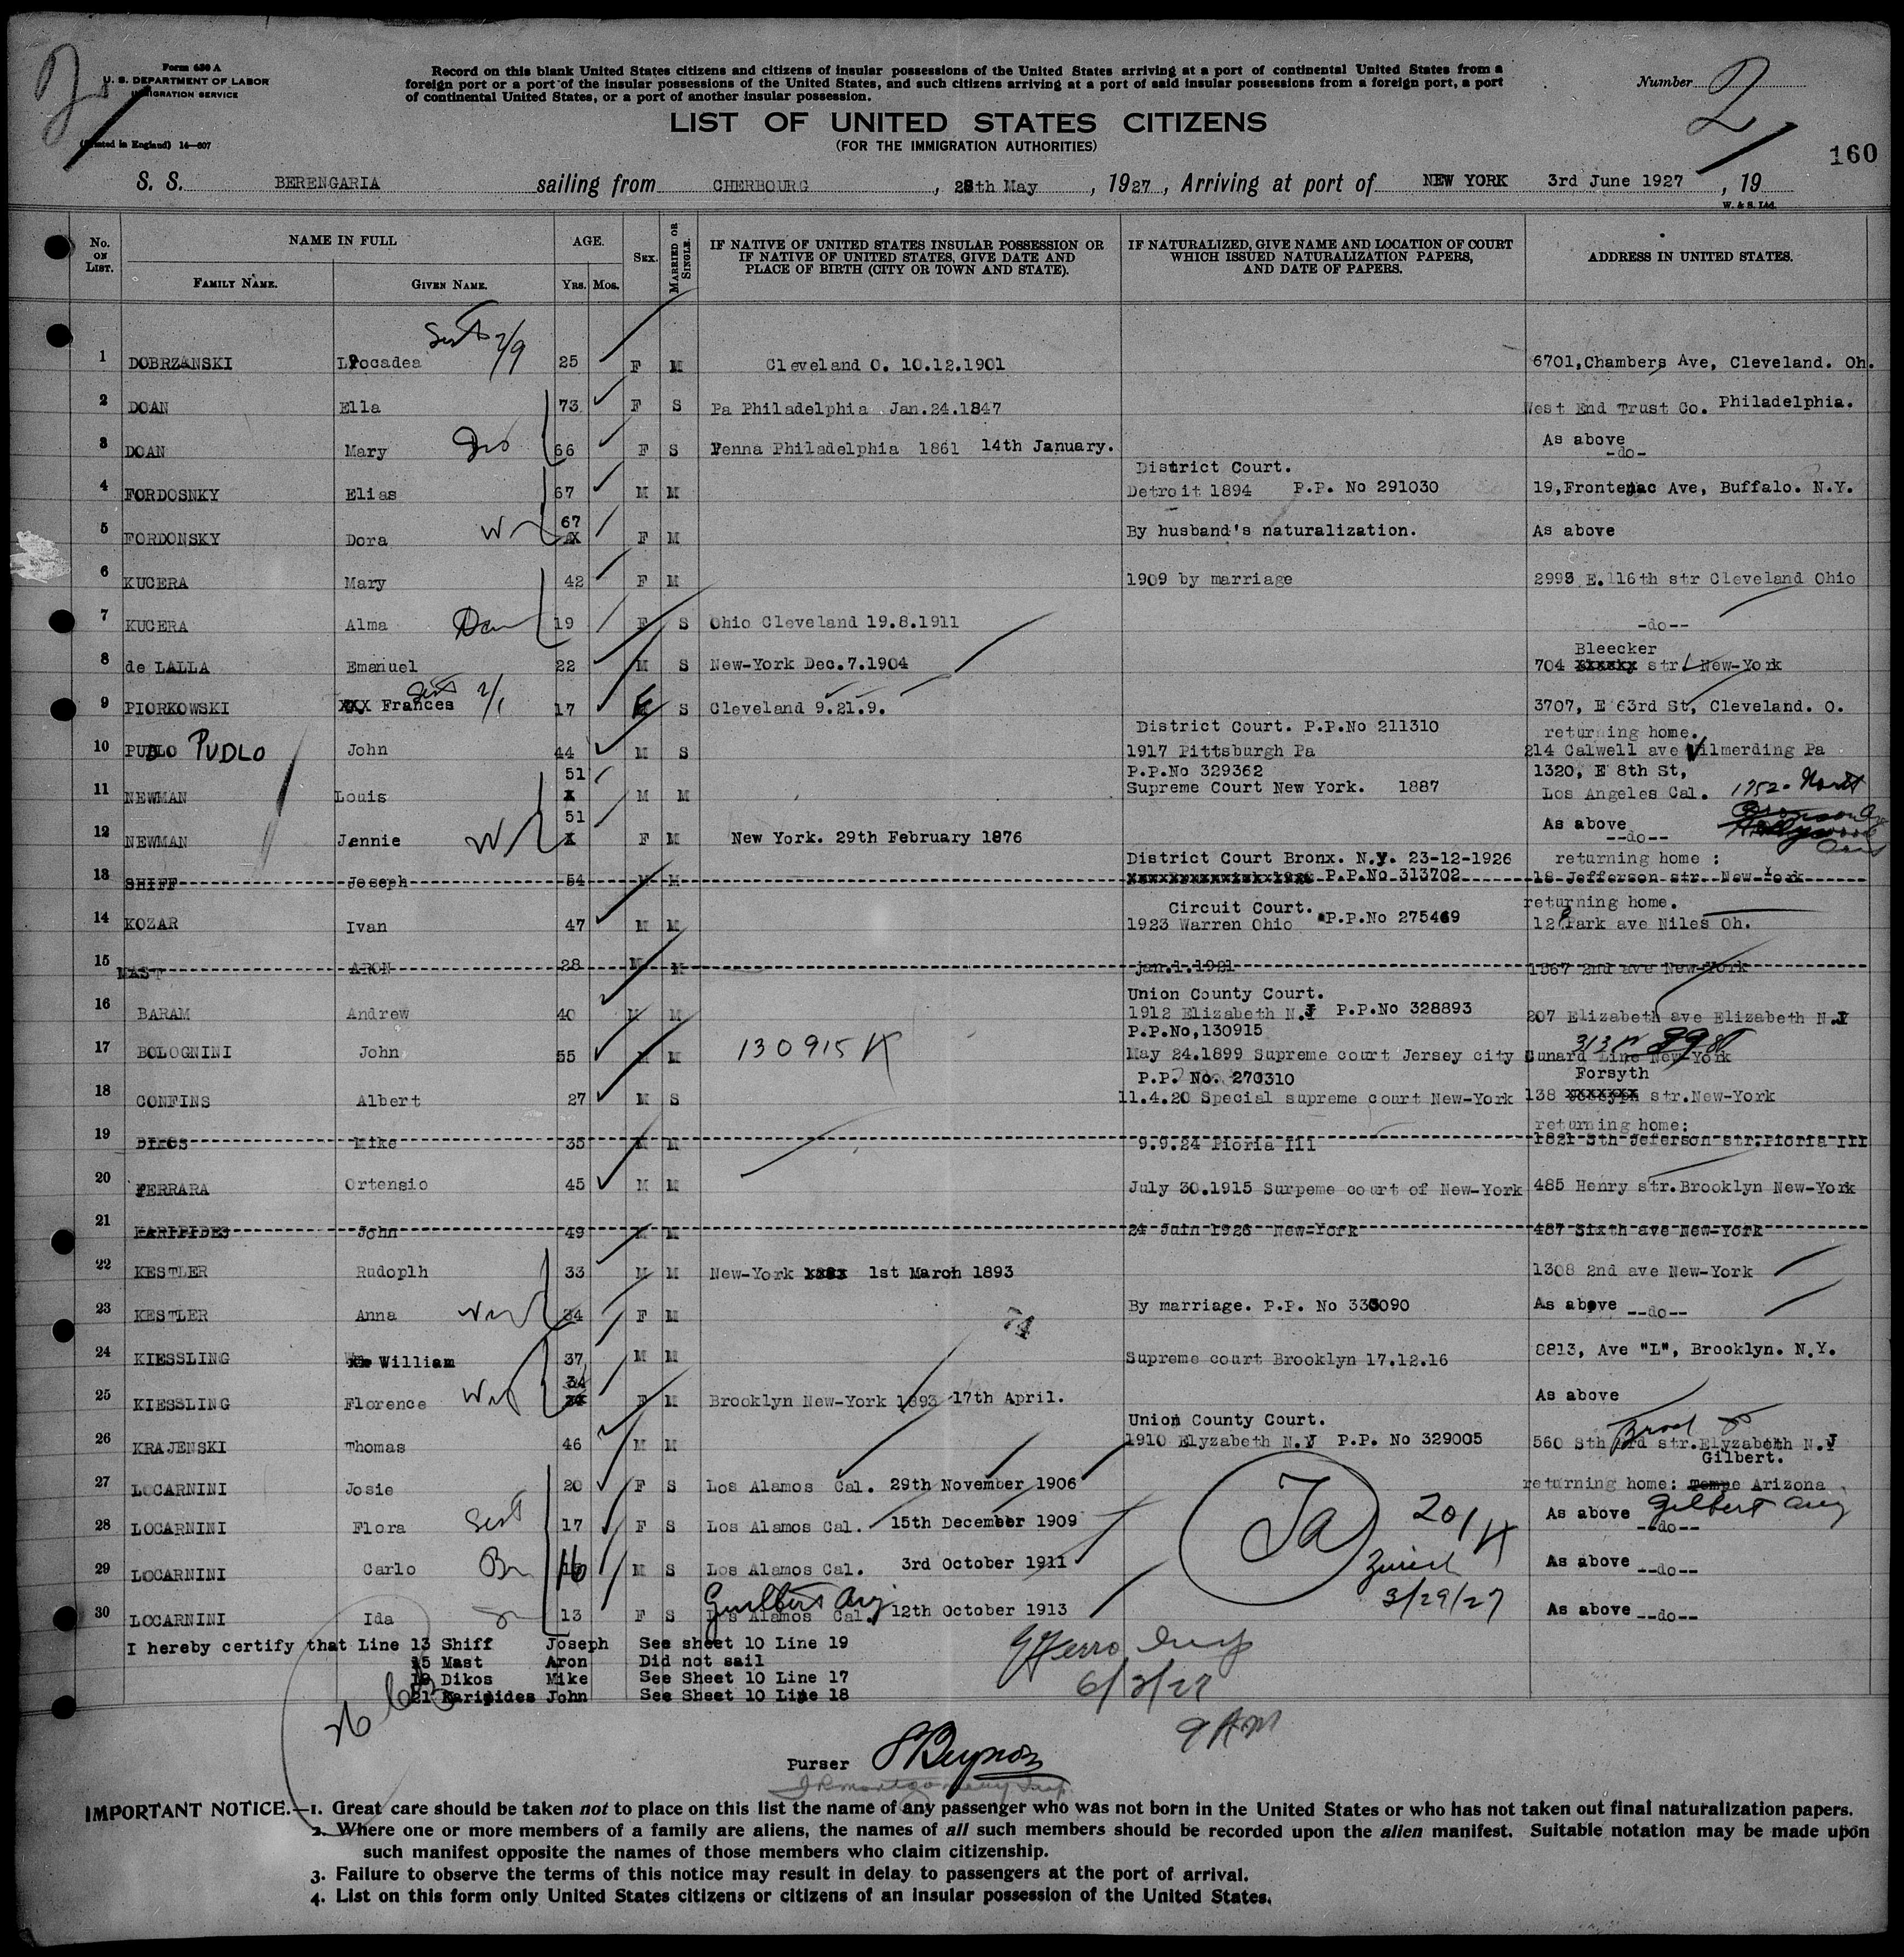 Form 630 A
U. S. DEPARTMENT OF LABOR
IMMIGRATION SERVICE
(Printed in England) 14—607
Record on this blank United States citizens and citizens of insular possessions of the United States arriving at a port of continental United States from a
foreign port or a port of the insular possessions of the United States, and such citizens arriving at a port of said insular possessions from a foreign port, a port
of continental United States, or a port of another insular possession.
Number 2
LIST OF UNITED STATES CITIZENS
(FOR THE IMMIGRATION AUTHORITIES)
160
S. S. BERENGARIA sailing from CHERBOURG , 28th May , 1927 , Arriving at port of NEW YORK 3rd June 1927 , 19
W. & S. Ltd.
No. ON LIST. NAME IN FULL FAMILY NAME. GIVEN NAME. AGE. YRS. MOS. SEX. MARRIED OR SINGLE. IF NATIVE OF UNITED STATES INSULAR POSSESSION OR IF NATIVE OF UNITED STATES, GIVE DATE AND PLACE OF BIRTH (CITY OR TOWN AND STATE). IF NATURALIZED, GIVE NAME AND LOCATION OF COURT WHICH ISSUED NATURALIZATION PAPERS, AND DATE OF PAPERS. ADDRESS IN UNITED STATES.
1 DOBRZANSKI Leocadea 25 F M Cleveland O. 10.12.1901 6701,Chambers Ave, Cleveland. Oh.
2 DOAN Ella 73 F S Pa Philadelphia Jan.24.1847 West End Trust Co. Philadelphia.
3 DOAN Mary 66 F S Penna Philadelphia 1861 14th January. As above -do-
District Court.
4 FORDOSNKY Elias 67 M M Detroit 1894 P.P. No 291030 19,Frontenac Ave, Buffalo. N.Y.
5 FORDONSKY Dora 67 F M By husband's naturalization. As above
6 KUCERA Mary 42 F M 1909 by marriage 2998 E.116th str Cleveland Ohio
7 KUCERA Alma 19 F S Ohio Cleveland 19.8.1911 -do--
Bleecker
8 de LALLA Emanuel 22 M S New-York Dec.7.1904 704 str New-York
9 PIORKOWSKI XXX Frances 17 F S Cleveland 9.21.9. 3707, E 63rd St, Cleveland. O.
District Court. P.P.No 211310 returning home.
10 PUDLO PUDLO John 44 M S 1917 Pittsburgh Pa 214 Calwell ave Wilmerding Pa
51 P.P.No 329362 1320, E 8th St,
11 NEWMAN Louis X M M Supreme Court New York. 1887 Los Angeles Cal. 1752 North
51 As above
12 NEWMAN Jennie X F M New York. 29th February 1876 --do--
District Court Bronx. N.Y. 23-12-1926 returning home :
13 SHIFF Joseph 54 M M P.P.No 313702 18 Jefferson str New-York
Circuit Court. returning home.
14 KOZAR Ivan 47 M M 1923 Warren Ohio P.P.No 275469 12 Park ave Niles Oh.
15 MAST ARON 28 M M jan.1.1921 1367 2nd ave New-York
Union County Court.
16 BARAM Andrew 40 M M 1912 Elizabeth N.J P.P.No 328893 207 Elizabeth ave Elizabeth N.J
P.P.No,130915
17 BOLOGNINI John 55 M M 130915 May 24.1899 Supreme court Jersey city Cunard Line New-York
P.P. No. 270310 Forsyth
18 CONFINS Albert 27 M S 11.4.20 Special supreme court New-York 138 str.New-York
returning home:
19 DIKOS Mike 35 M M 9.9.24 Pioria III 1821 Sth Jeferson str.Pioria III
20 FERRARA Ortensio 45 M M July 30.1915 Surpeme court of New-York 485 Henry str.Brooklyn New-York
21 KARIPIDES John 49 M M 24 Juin 1926 New-York 487 Sixth ave New-York
22 KESTLER Rudoplh 33 M M New-York 1st March 1893 1308 2nd ave New-York
23 KESTLER Anna 34 F M By marriage. P.P. No 333090 As above --do--
24 KIESSLING William 37 M M Supreme court Brooklyn 17.12.16 8813, Ave "L", Brooklyn. N.Y.
25 KIESSLING Florence 34 F M Brooklyn New-York 1893 17th April. As above
Union County Court.
26 KRAJENSKI Thomas 46 M M 1910 Elyzabeth N.J P.P. No 329005 560 Sth Brod str.Elyzabeth N.J
Gilbert.
27 LOCARNINI Josie 20 F S Los Alamos Cal. 29th November 1906 returning home: Tempe Arizona
28 LOCARNINI Flora 17 F S Los Alamos Cal. 15th December 1909 As above --do-- Gilbert
29 LOCARNINI Carlo 16 M S Los Alamos Cal. 3rd October 1911 As above --do--
30 LOCARNINI Ida 13 F S Los Alamos Cal. 12th October 1913 As above --do--
Zurich
3/29/27
I hereby certify that Line 13 Shiff Joseph See sheet 10 Line 19
15 Mast Aron Did not sail
19 Dikos Mike See Sheet 10 Line 17
21 Karipides John See Sheet 10 Line 18
6/3/27
9 AM
Purser
IMPORTANT NOTICE.—1. Great care should be taken not to place on this list the name of any passenger who was not born in the United States or who has not taken out final naturalization papers.
2. Where one or more members of a family are aliens, the names of all such members should be recorded upon the alien manifest. Suitable notation may be made upon
such manifest opposite the names of those members who claim citizenship.
3. Failure to observe the terms of this notice may result in delay to passengers at the port of arrival.
4. List on this form only United States citizens or citizens of an insular possession of the United States.